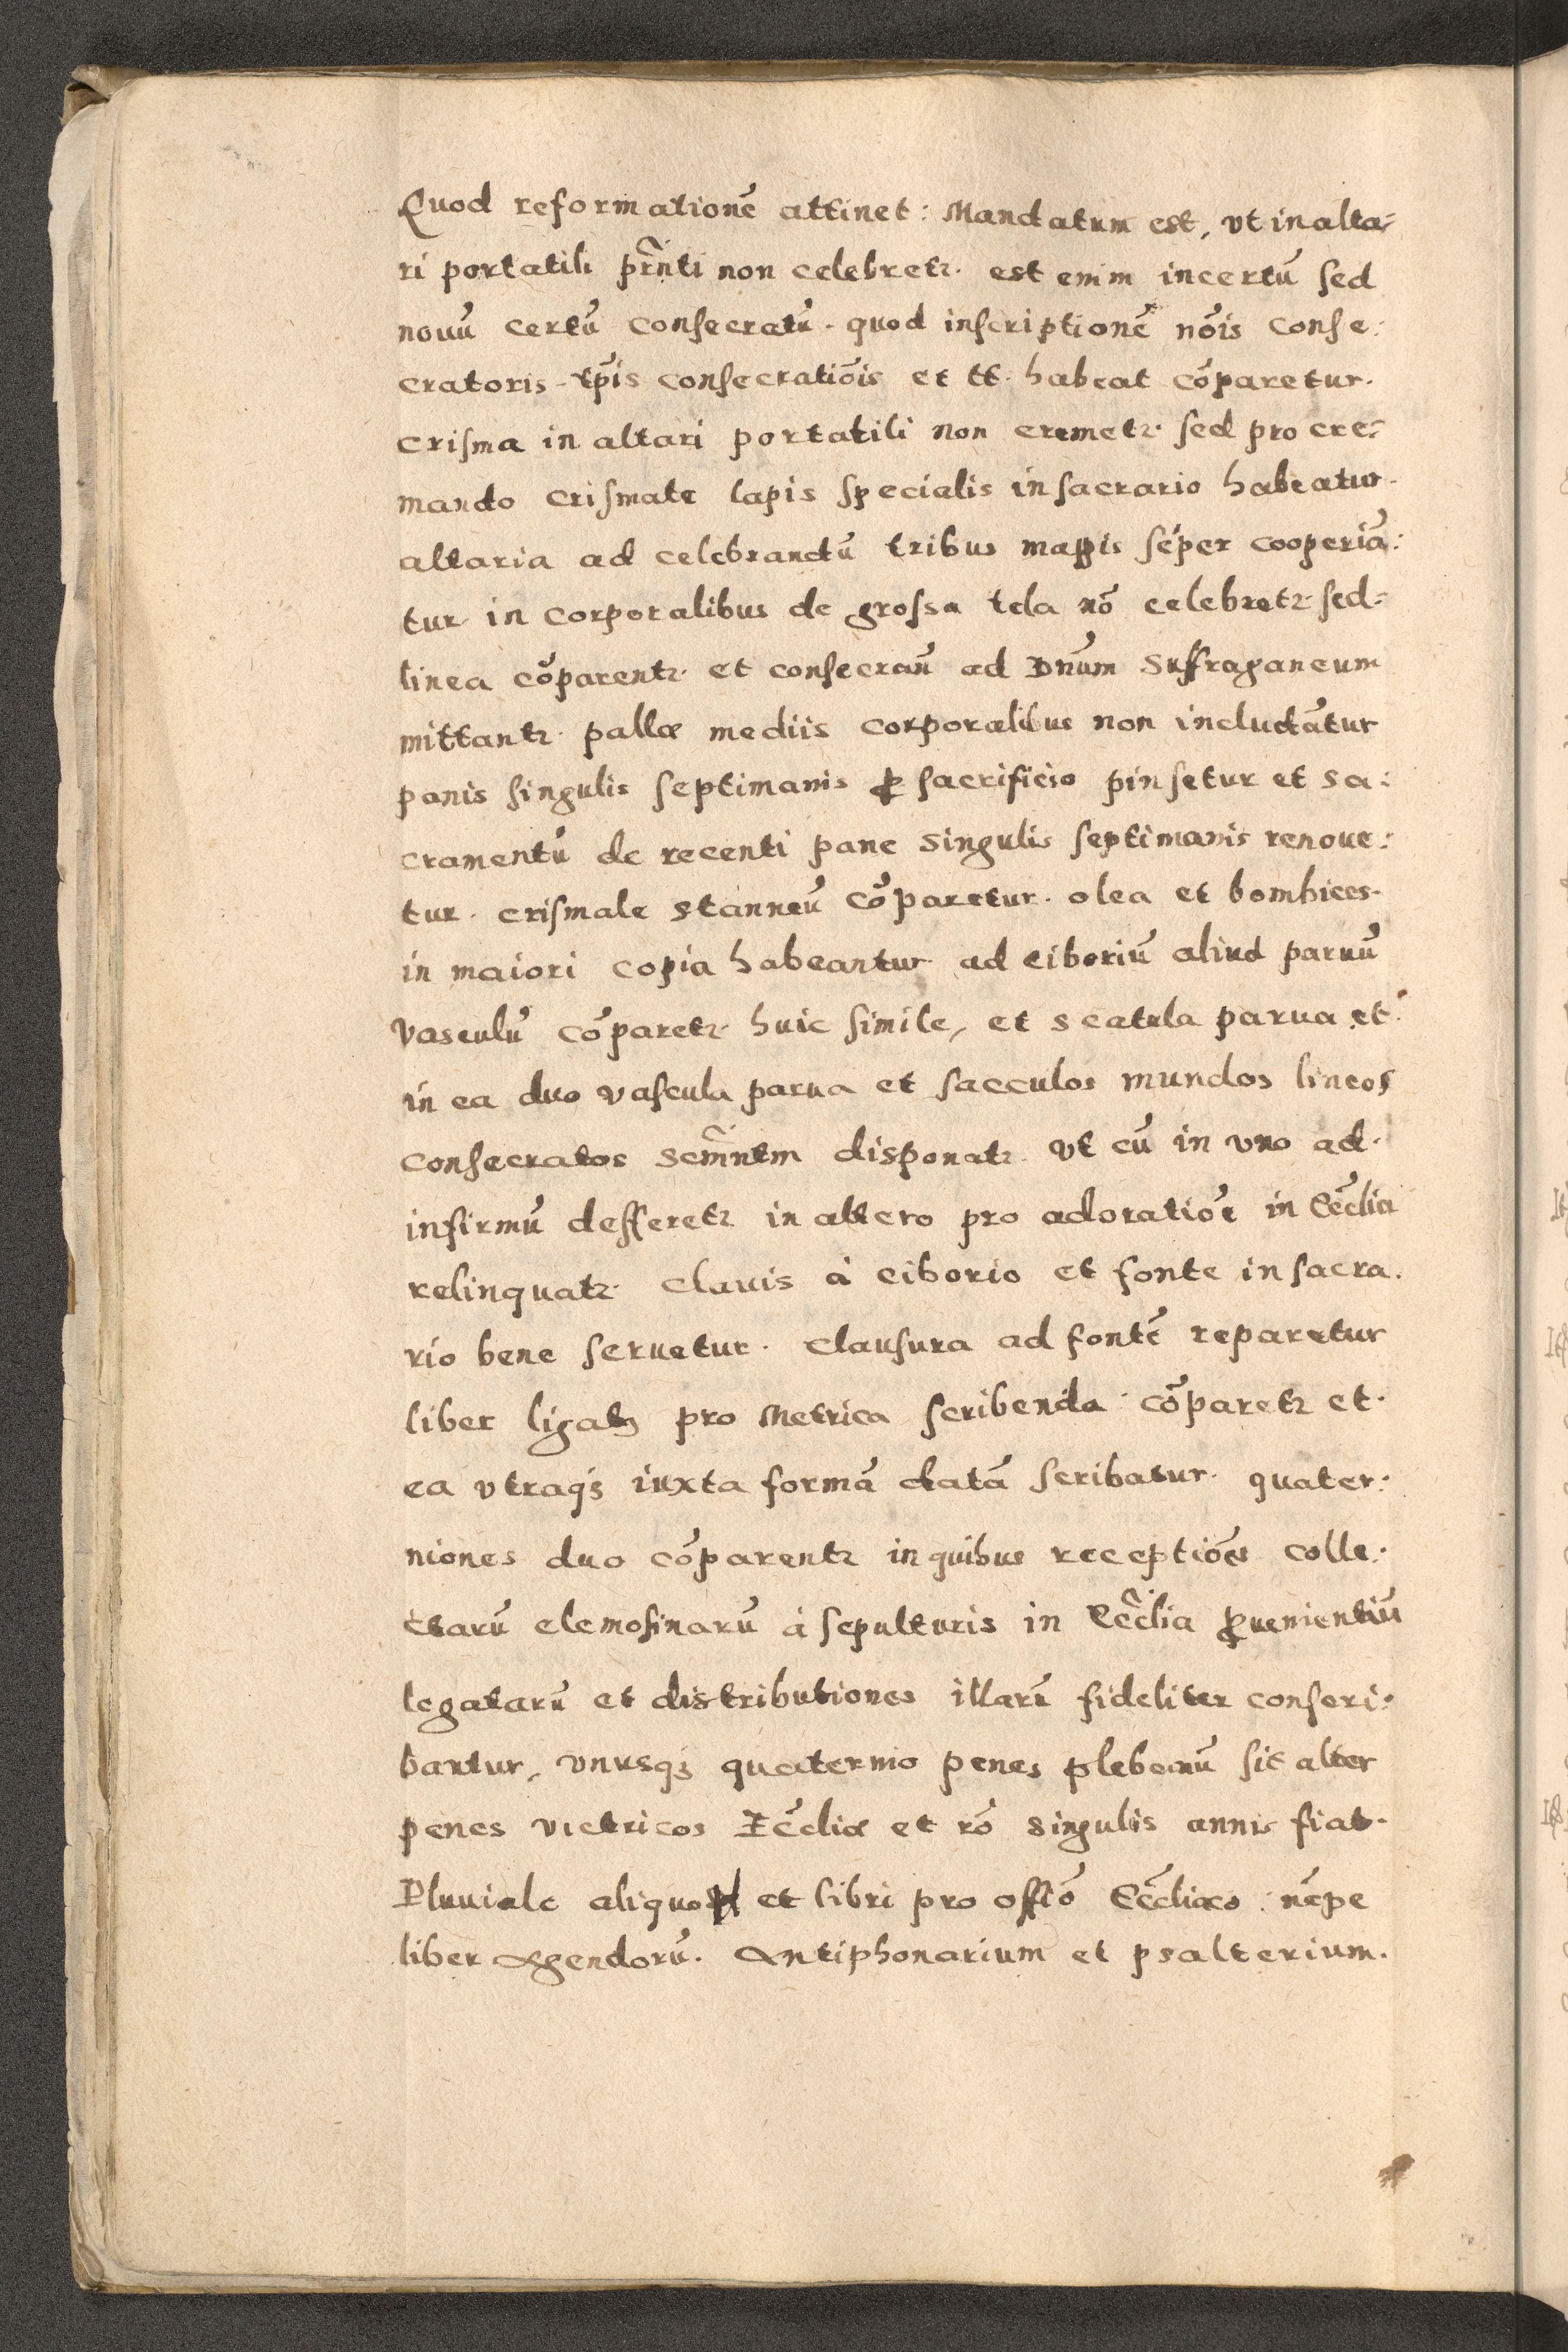 Quod reformationē attinet: Mandatum est, vt in alta=
ri portatili pr̃nti non celebretr. est enim incertū sed
nouū certū consecratū. quod inscriptionē nōis conse:
cratoris tp̄is consecratiōis et tt. habeat cōparetur.
crisma in altari portatili non cremetr. sed pro cre=
mando crismate lapis specialis in sacrario habeatur.
altaria ad celebrandū tribus mappis sēper cooperiā:
tur in corporalibus de grossa tela nō celebretr. sed=
linea cōparentr. et consecran̄ ad Dn̄um Suffraganeum
mittantr. pallæ mediis corporalibus non includātur
panis singulis septimanis ꝓ sacrificio pinsetur et sa:
cramentū de recenti pane singulis septimanis renoue:
tur. crismale stanneū cōparetur. olea et bombices.
in maiori copia habeantur ad ciboriū aliud paruū
vasculū cōparetr. huic simile, et scatula parua et
in ea duo vascula parua et sacculos mundos lineos
consecratos sem̃ntem disponatr. vt cū in vno ad.
infirmū defferetr in altero pro adoratiōe in Eccĺia
relinquatr. Clauis à ciborio et fonte in sacra.
rio bene seruetur. Clausura ad fontē reparetur
liber ligatꝰ pro Metrica scribenda cōparetr et.
ea vtraqꝫ iuxta formā datā scribatur. quater:
niones duo cōparentr in quibus receptiōes colle:
ctarū elemosinarū à sepulturis in Eccl̃ia ꝓuenientiū
legatarū et distributiones illarū fideliter conscri:
bantur, vnusqꝫ quaternio penes plebanū sit alter
penes victricos Eccl̄iæ et rō singulis annis fiat.
Pluuiale aliquod et libri pro offiō Eccl̄iæo: nēpe
liber Agendorū. Antiphonarium et psalterium.